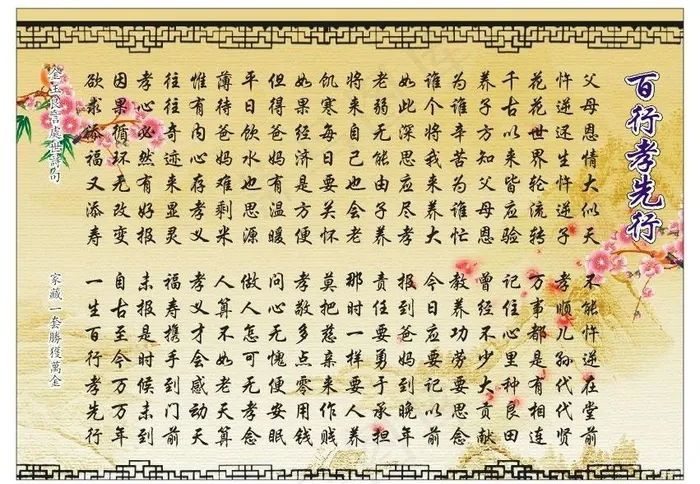 百行孝先行
父母恩情大似天
忤逆还生忤逆子
花花世界轮流转
千古以来皆应验
养子方知父母恩
为谁辛苦为谁忙
谁个将我来养大
如此深思应尽孝
老弱无能由子养
将来自己也会老
饥寒每日要关怀
如果经济是方便
但得爸妈有温暖
平日饮水也思源
薄待爸妈难剩米
惟有内心存孝义
往往奇迹来显灵
孝心必然有好报
因果循环无改变
欲求添福又添寿
不能忤逆在堂前
孝顺儿孙代代贤
万事都是有相连
记住心里种良田
曾经不少大贡献
教养功劳要思念
今日应要记以前
报到爸妈到晚年
责任要勇于承担
那时一样要人养
莫把慈亲来作贱
孝敬多点零用钱
问心无愧便安眠
做人怎可无孝念
人算不如老天算
孝义才会感动天
福寿携手到门前
未报是时候未到
自古至今万万年
一生百行孝先行
金玉良言處世詩句
家藏一套勝獲萬金